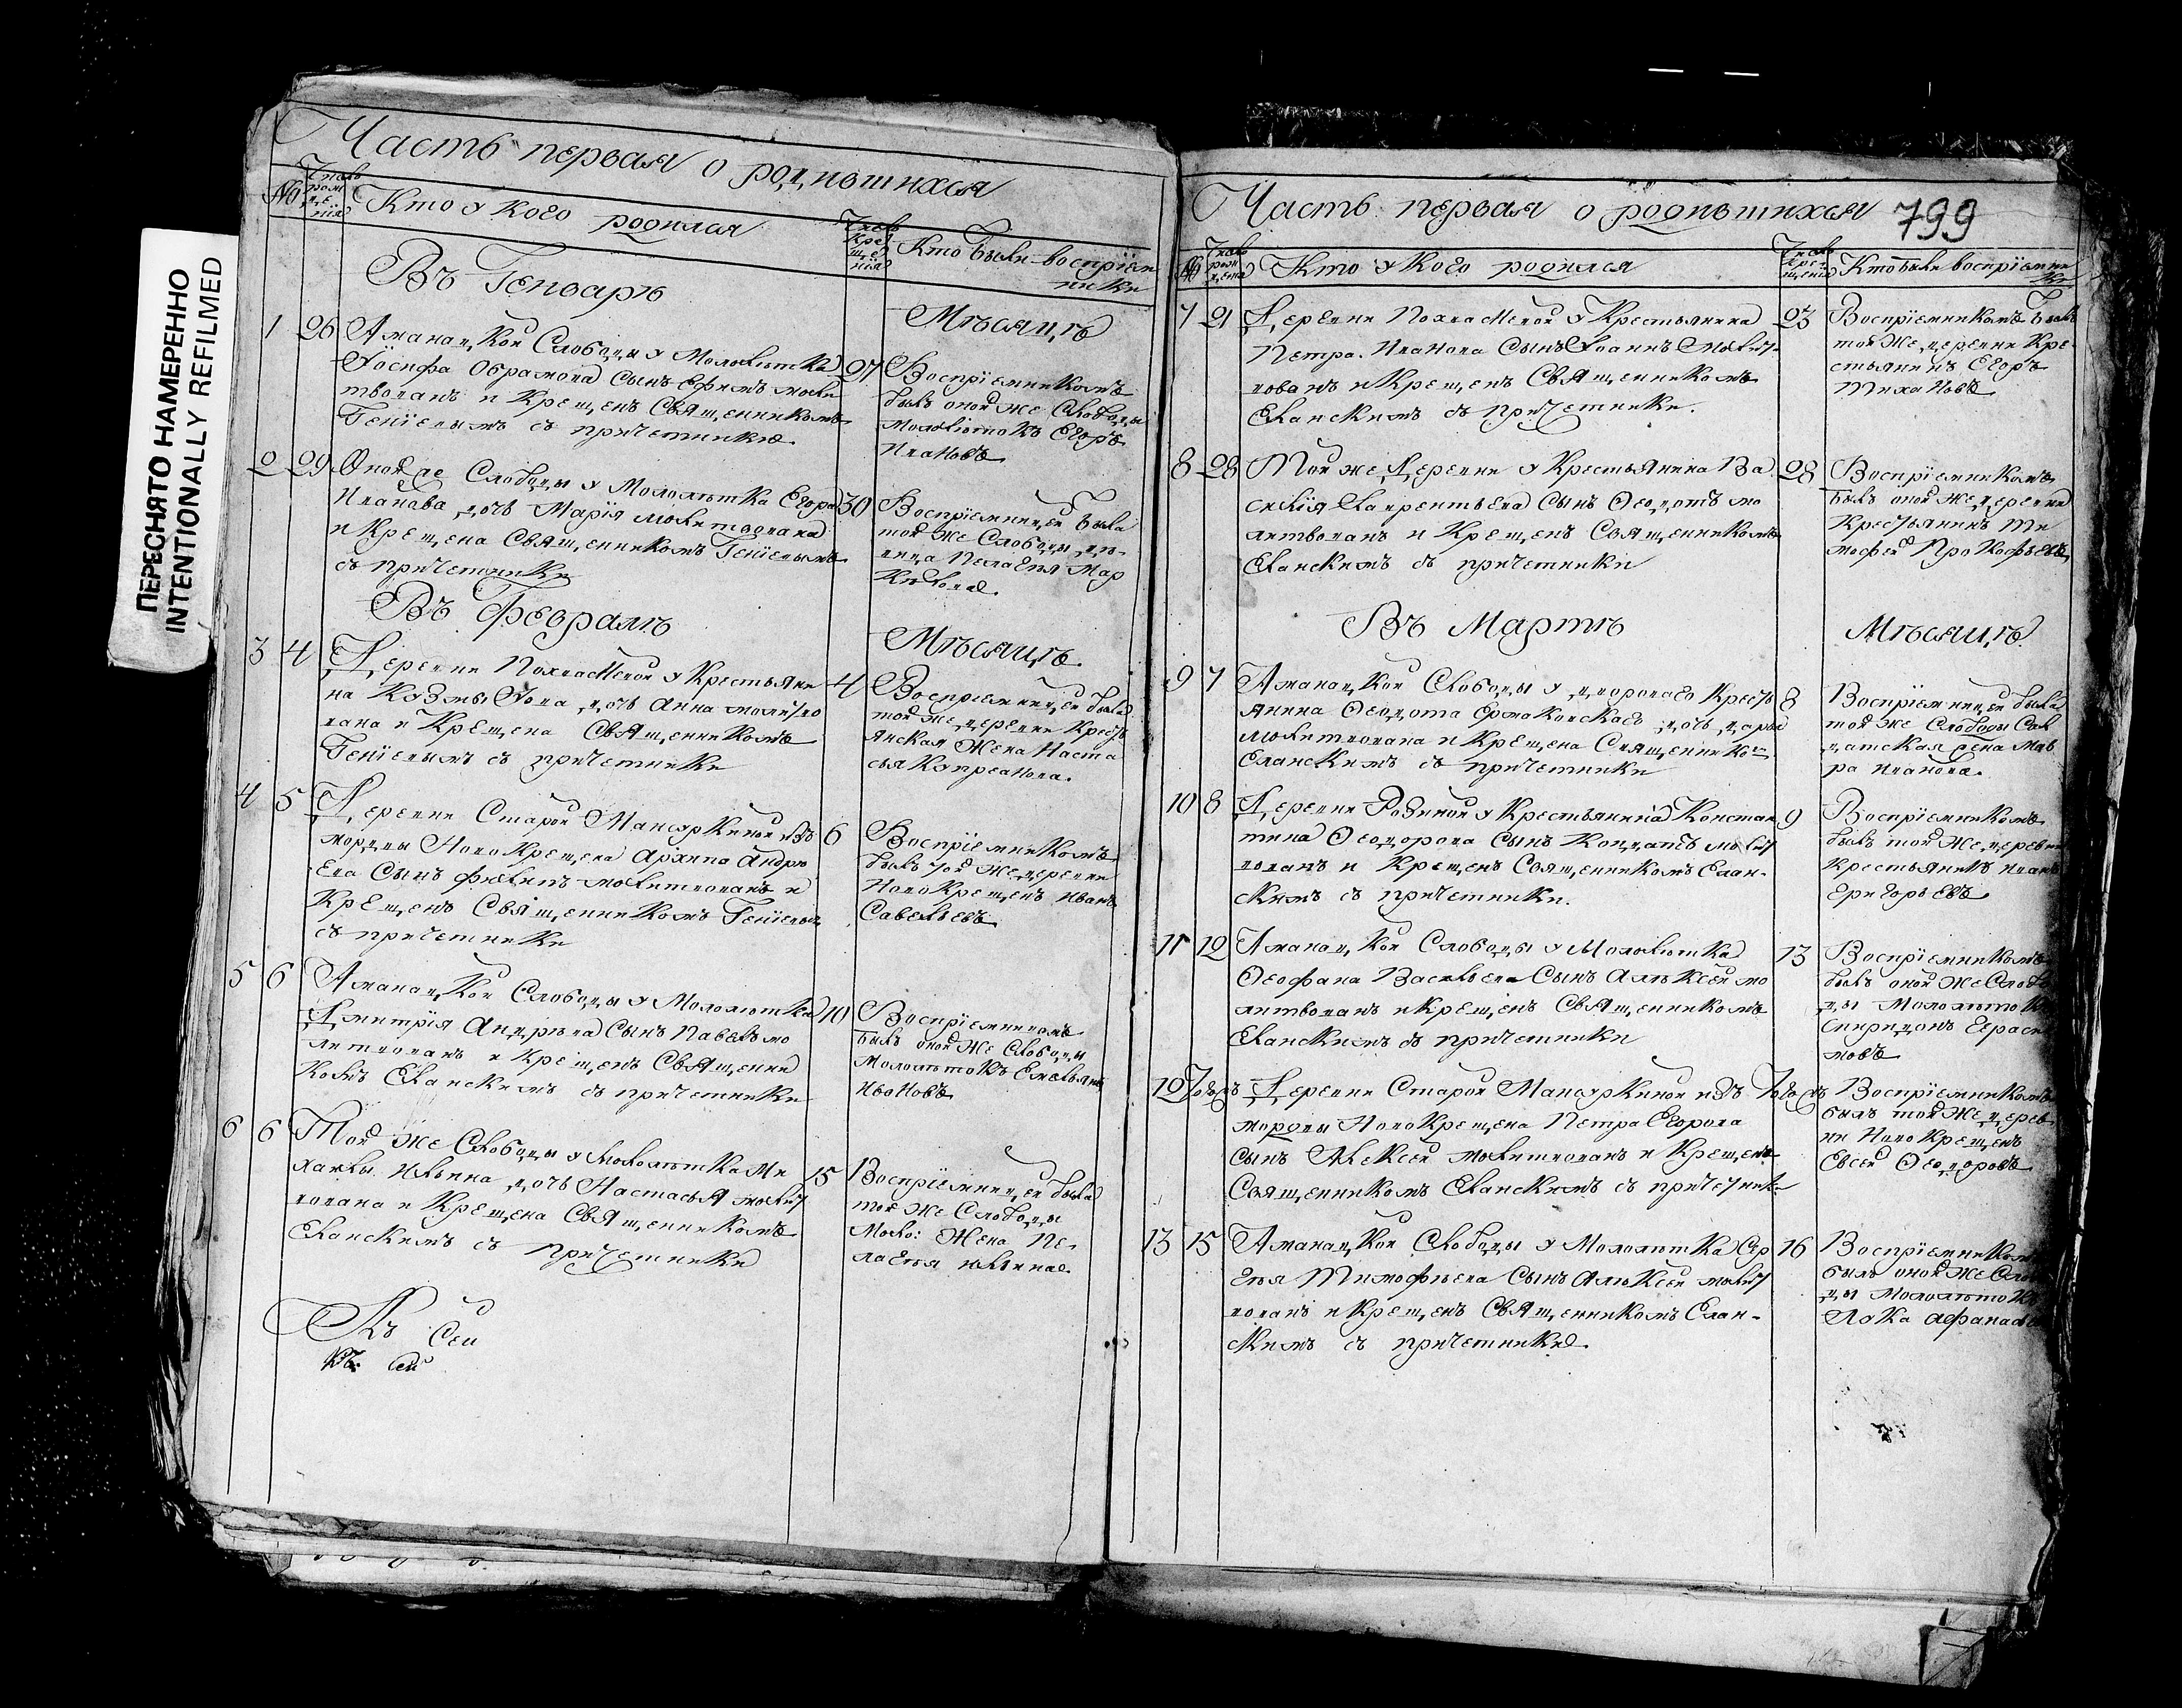 ПЕРЕСНЯТО НАМЕРЕННО
INTENTIONALLY REFILMED
Часть первая о родившихся
№
Число рожденія
Кто у кого родился
Число крещенія
Кто были воспріемники
Въ Генваре
Мѣсяцѣ
1 26 Аманацкой Слободы у Молол
Іосифа Абрамова сынъ Ефимъ моли
твованъ и крещенъ Священникомъ
съ причетники
27 Воспріемникомъ
былъ оной же Слободы
Егоръ
Ивановъ
2 29 Оной же Слободы у Егора
Иванова дочь Марія молитвована
и крещена Священникомъ
съ причетники
30 Воспріемницей была
той же Слободы
Пелагея Мар
кова
Въ Февралѣ
Мѣсяцѣ
3 4 Деревни у крестьяни
на Козмы дочь Анна молитво
вана и крещена Священникомъ
съ причетники
4 Воспріемницей была
той же деревни кресть
янская жена Наста
сья
4 5 Деревни Старой Мансуркиной изъ
мордвы Новокрещена Архипа Андре
ева сынъ Филипъ молитвованъ и
крещенъ Священникомъ
съ причетники
6 Воспріемникомъ
былъ той же деревни
Новокрещенъ Иванъ
Савельевъ
5 6 Аманацкой Слободы у
Дмитрія Андреева сынъ Павелъ мо
литвованъ и крещенъ Священни
комъ Еланскимъ съ причетники
10 Воспріемникомъ
былъ оной же Слободы
Емельянъ
Ивановъ
6 6 Той же Слободы у Ми
хайлы Ильина дочь Настасья молит
вована и крещена Священникомъ
Еланскимъ съ причетники
15 Воспріемницей была
той же Слободы
Моло: жена Пе
лагея Ильина
Къ сей
Къ сей
Часть первая о родившихся 799
№
Число рожденія
Кто у кого родился
Число крещенія
Кто были воспріемники
7 21 Деревни у крестьянина
Петра Иванова сынъ Іоаннъ молит
вованъ и крещенъ Священникомъ
Еланскимъ съ причетники.
23 Воспріемникомъ былъ
той же деревни кре
стьянинъ Егоръ
Тихановъ
8 28 Той же деревни у крестьянина Ва
силія Лаврентьева сынъ Феодотъ мо
литвованъ и крещенъ Священникомъ
Еланскимъ съ причетники
28 Воспріемникомъ
былъ оной же деревни
крестьянинъ Ти
мофей Прокофьевъ
Въ Мартѣ
Мѣсяцѣ
9 7 Аманацкой Слободы у дворового кресть
янина Феодота дочь Дарья
молитвована и крещена Священником
Еланскимъ съ причетники
8 Воспріемницей была
той же Слободы Сол
датская жена Мав
ра Иванова
10 8 Деревни у крестьянина Констан
тина Феодорова сынъ Кондратъ молит
вованъ и крещенъ Священникомъ Елан
скимъ съ причетники.
9 Воспріемникомъ
былъ той же деревни
крестьянинъ Иванъ
Григорьевъ
11 12 Аманацкой Слободы у
Феофана Васильева сынъ Алексей мо
литвованъ и крещенъ Священникомъ
Еланскимъ съ причетники
13 Воспріемникомъ
былъ оной же Слобо
ды
Спиридонъ Гераси
мовъ
12 Деревни Старой Мансуркиной изъ
мордвы Новокрещена Петра Егорова
сынъ Алексей молитвованъ и крещенъ
Священникомъ Еланскимъ съ причетники
Воспріемникомъ
былъ той же дерев
ни Новокрещенъ
Евсей Феодоровъ
13 15 Аманацкой Слободы у Сер
гея Тимофеева сынъ Алексей молит
вованъ и крещенъ Священникомъ Елан
скимъ съ причетники.
16 Воспріемникомъ
былъ оной же Слобо
ды
Лука Афанасьев